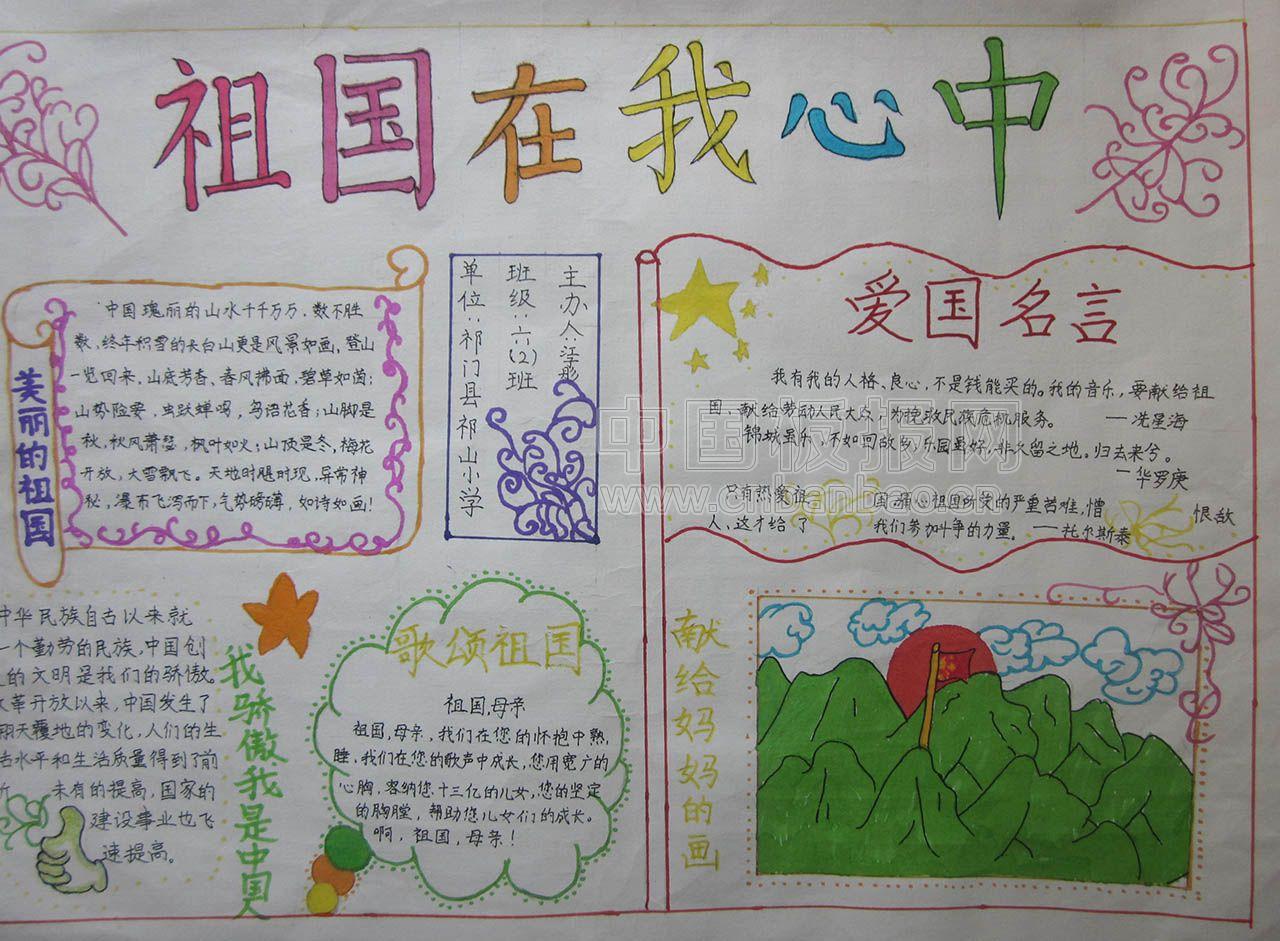 祖国在我心中
美丽的祖国
中国瑰丽的山水千千万万，数不胜
数，终年积雪的长白山更是风景如画，登山
一览回来，山底芳香、春风拂面，碧草如茵；
山势险要，虫跃蝉鸣，鸟语花香；山脚是
秋，秋风萧瑟，枫叶如火；山顶是冬，梅花
开放，大雪飘飞。天地时隐时现，异常神
秘，瀑布飞泻而下，气势磅礴，如诗如画！
主办人：江彤
班级：六(2)班
单位：祁门县祁山小学
爱国名言
我有我的人格、良心，不是钱能买的。我的音乐，要献给祖
国，献给劳动人民大众，为挽救民族危机服务。 —冼星海
锦城虽乐，不如回故乡，乐园虽好，非久留之地。归去来兮。
—华罗庚
只有热爱祖 国，痛心祖国所受的严重苦难，憎 恨敌
人，这才给了 我们参加斗争的力量。 —托尔斯泰
中国板报网
www.cnbanbao.cn
中华民族自古以来就
一个勤劳的民族，中国创
的文明是我们的骄傲。
改革开放以来，中国发生了
翻天覆地的变化，人们的生
活水平和生活质量得到了前
所 未有的提高，国家的
建设事业也飞
速提高。
我骄傲我是中国人
歌颂祖国
祖国，母亲
祖国，母亲，我们在您的怀抱中熟
睡，我们在您的歌声中成长，您用宽广的
心胸，容纳您十三亿的儿女，您的坚定
的胸膛，帮助您儿女们的成长。
啊，祖国，母亲！
献给妈妈的画